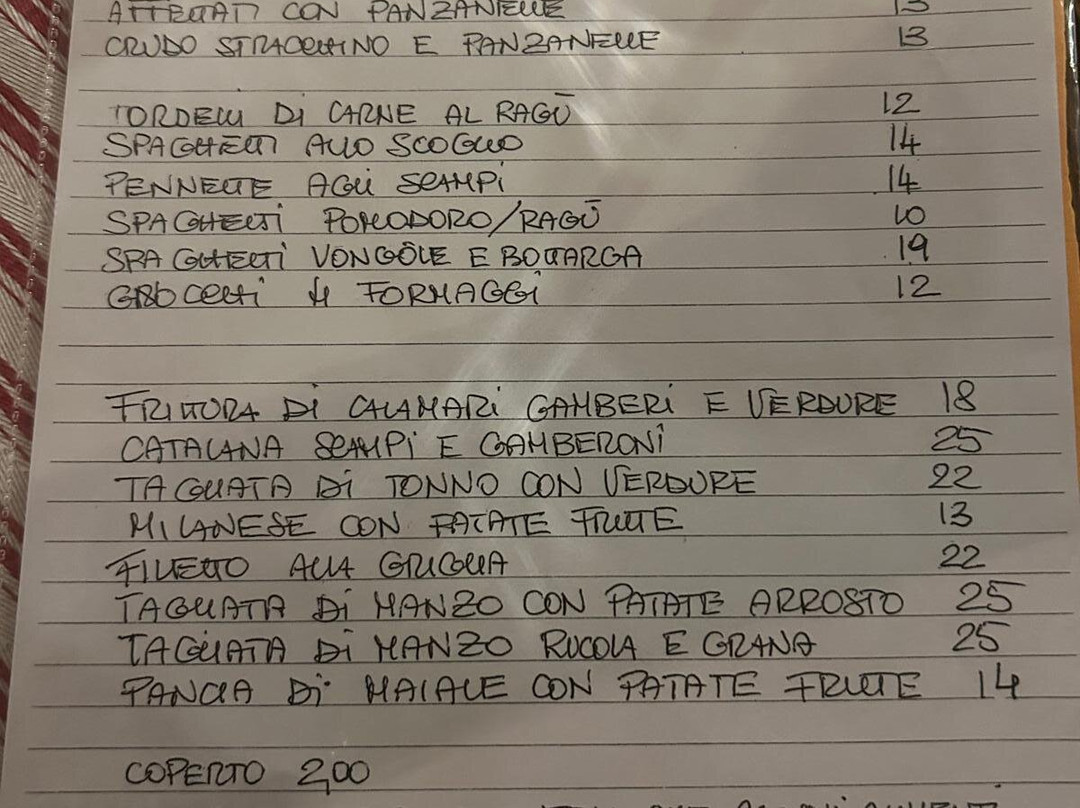 AFFETTATI CON PANZANELLE 13
CRUDO STRACCHINO E PANZANELLE 13
TORDELLI DI CARNE AL RAGÙ 12
SPAGHETTI ALLO SCOGLIO 14
PENNETTE AGLI SCAMPI 14
SPAGHETTI POMODORO/RAGÙ 10
SPAGHETTI VONGOLE E BOTTARGA 19
4 FORMAGGI 12
FRITTURA DI CALAMARI GAMBERI E VERDURE 18
CATALANA SCAMPI E GAMBERONI 25
TAGLIATA DI TONNO CON VERDURE 22
MILANESE CON PATATE FRITTE 13
FILETTO ALLA GRIGLIA 22
TAGLIATA DI MANZO CON PATATE ARROSTO 25
TAGLIATA DI MANZO RUCOLA E GRANA 25
PANCIA DI MAIALE CON PATATE FRITTE 14
COPERTO 2,00